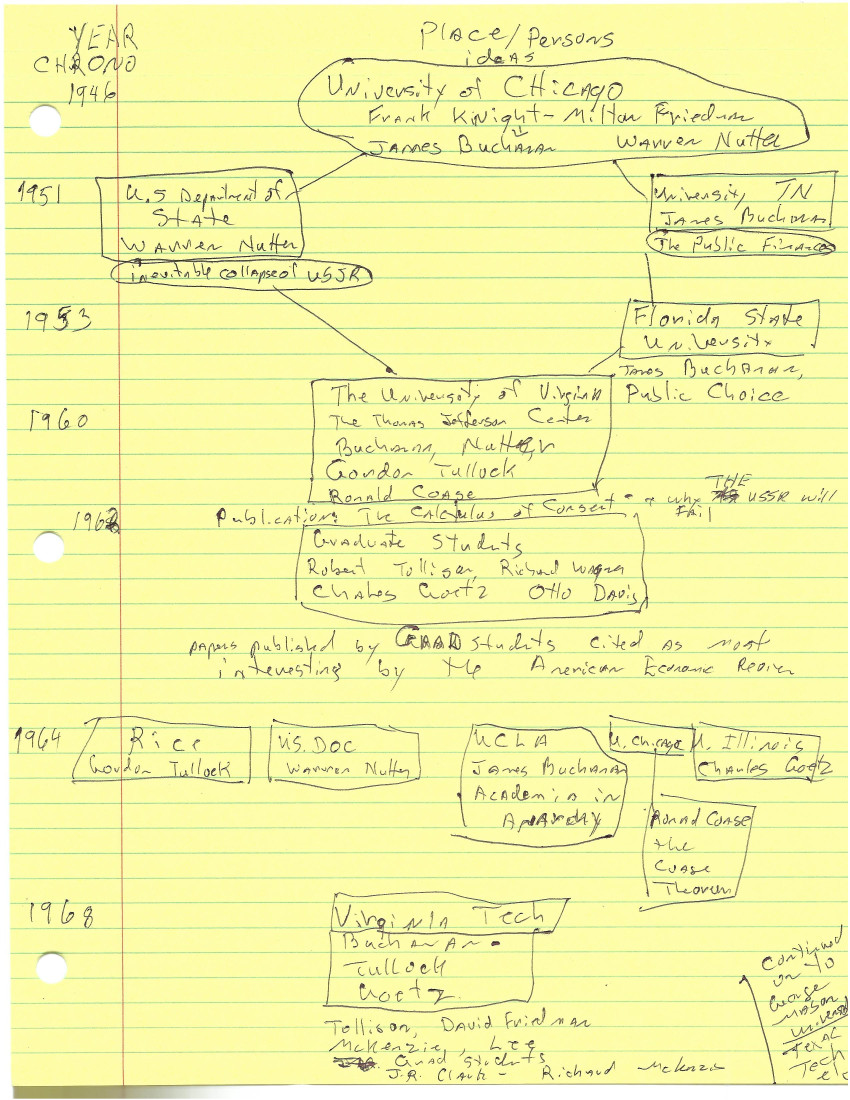 YEAR
CHRONO
1946
Place/Persons
ideas
University of CHicago
Frank Knight - Milton Friedman
James Buchanan Warren Nutter
1951
U.S Department of
State
Warren Nutter
inevitable collapse of USSR
University TN
James Buchanan
The Public Finances
1953
Florida State
University
James Buchanan,
Public Choice
1960
The University of Virginia
The Thomas Jefferson Center
Buchanan, Nutter
Gordon Tullock
Ronald Coase
1962
Publication: The Calculus of Consent - why THE USSR will
Fail
Graduate Students
Robert Tollison, Richard Wagner
Charles Goetz Otto Davis
papers published by GRAD students cited as most
interesting by the American Economic Review
1964
Rice
Gordon Tullock
US. DOC
Warren Nutter
UCLA
James Buchanan
Academia in
Anarchy
U. Chicago
Ronad Coase
the
Coase
Theorem
U. Illinois
Charles Goetz
1968
Virginia Tech
Buchanan
Tullock
Goetz
Tollison, David Friedman
McKenzie, Lee
Grad Students
J.R. Clark - Richard McKenzie
Continued
on to
George
Mason
Universit
Texas
Tech
etc